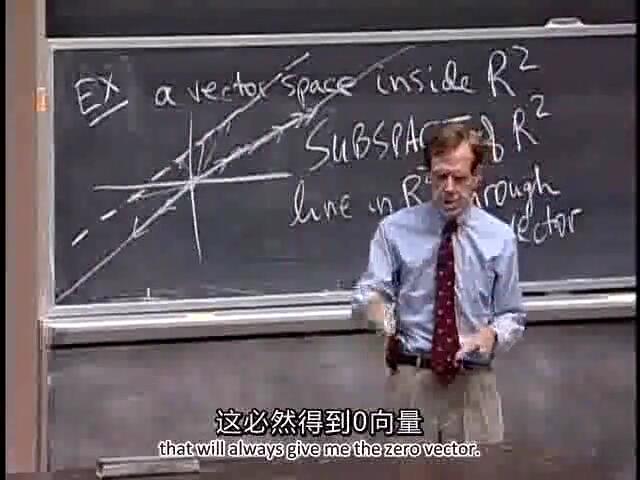 EX a vector space inside R²
SUBSPACE of R²
line in R² through
vector
这必然得到0向量
that will always give me the zero vector.